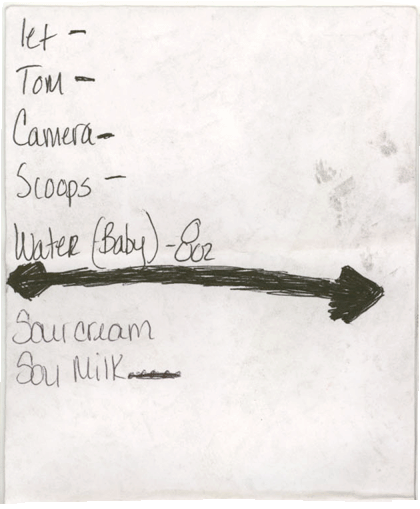 let -
Tom -
Camera -
Scoops -
Water (Baby) - 8oz
Sour cream
Soy Milk